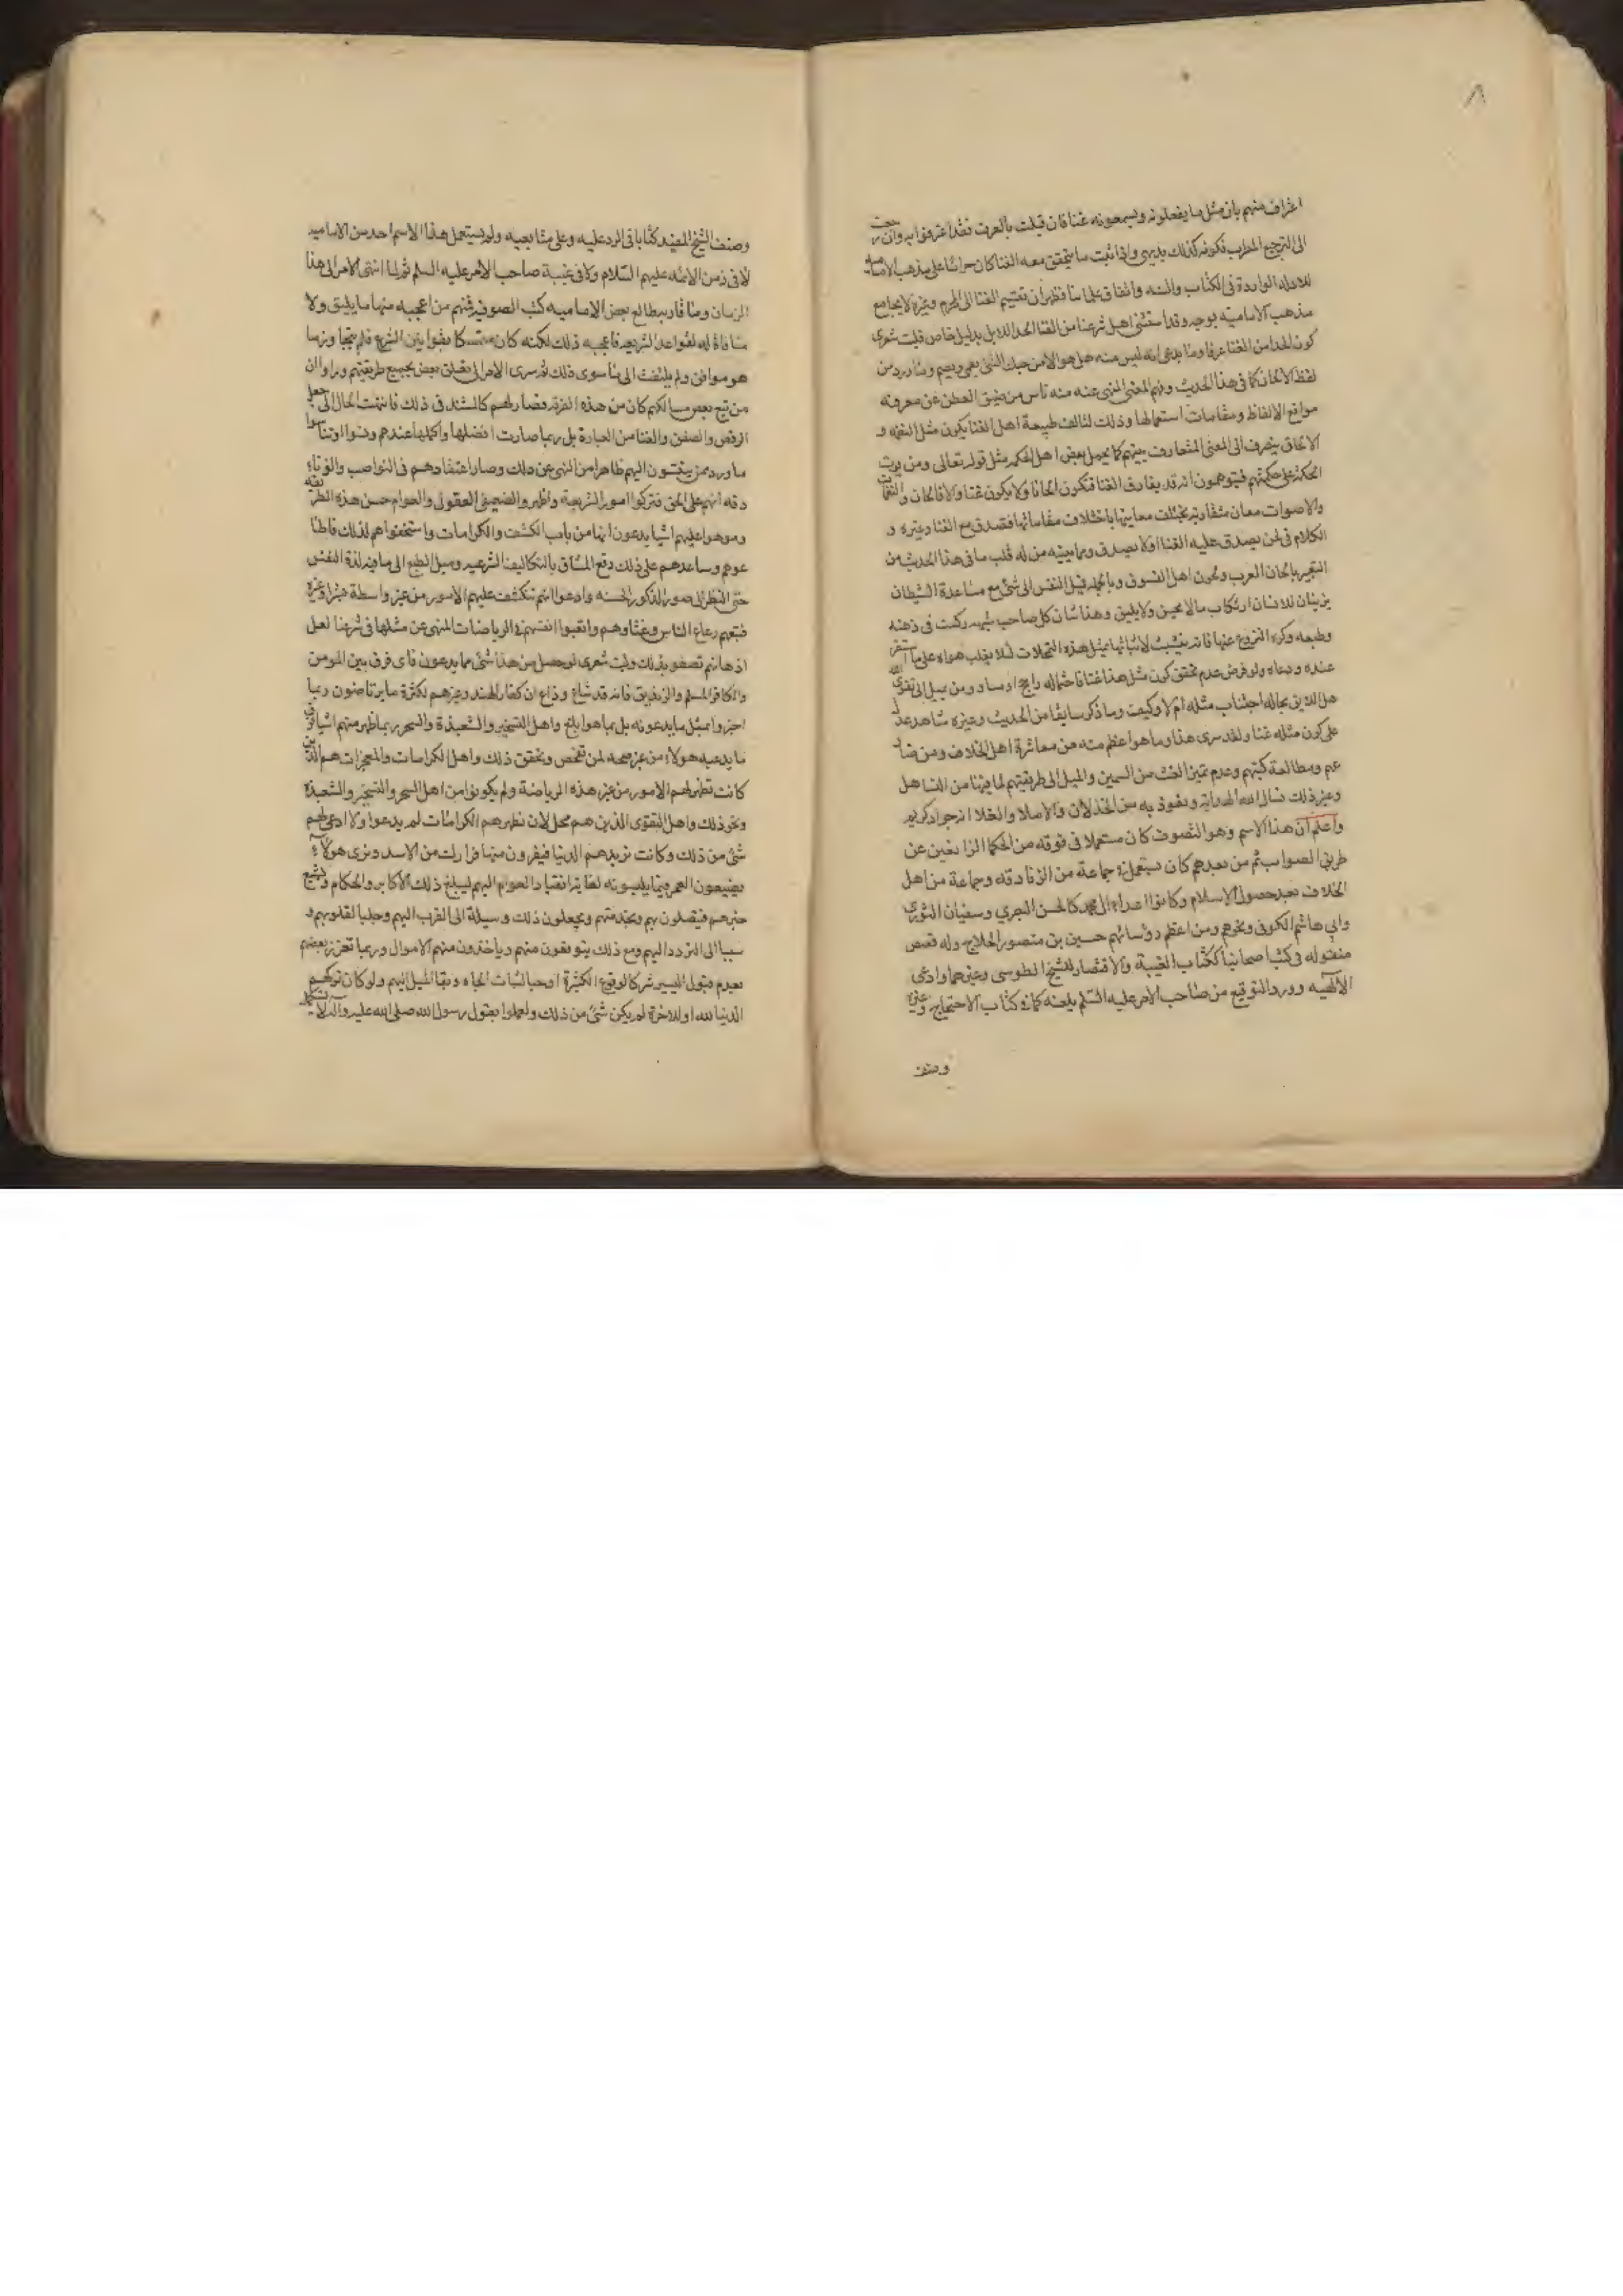 اعتراف منهم بان مثل ما يفعلونه ويسمعونه غنا فان قيلت بالعرف فقد اعترفوا به وان رجعت
الى الترجيع المطرب فكونه كذلك بديهي واذا ثبت ما يتحقق معه الغنا كان حراما على مذهب الاماميه
للادله الوارده في الكتاب والسنه واتفاق علمائنا فظهر أن تقسيم الغنا الى المحرم وغيره لا يجامع
مذهب الاماميه بوجه وقد استثنى اهل شرعنا من الغنا الحدا للابل بدليل خاص فليت شعرى
كون الحدا من الغنا عرفا وما يدعى انه ليس منه هل هو الا من حبك الشئ يعمى ويصم وما ورد من
لفظ الالحان كما في هذا الحديث وفهم المعنى المنهى عنه منه ناش من ضيق العطن عن معرفة
مواقع الالفاظ ومقامات استعمالها وذلك لتالف طبيعة اهل الغنا يكون مثل النغمه و
الالحان ينصرف الى المعنى المتعارف بينهم كما يحمل بعض اهل الحكمه مثل قوله تعالى ومن يوت
الحكمة على حكمتهم فيتوهمون انه قد يفارق الغنا فتكون الحانا ولا يكون غنا والا فالحان والنغمات
والاصوات معان متفاوته تختلف معانيها باختلاف مقاماتها فتصدق مع الغنا وغيره و
الكلام في لحن يصدق عليه الغنا اولا يصدق ومما يبينه من له قلب ما في هذا الحديث من
التعبير بالحان العرب ولحون اهل الفسوق وبالجمله فميل النفس الى شئ مع مساعدة الشيطان
يزينان للانسان ارتكاب ما لا يحسن ولا يليق وهذا شان كل صاحب شبهه ركبت في ذهنه
وطبعه وكره النزوع عنها فانه يتشبث لاثباتها بمثل هذه التمحلات لئلا يغلب هواه على ما استقر
عنده ودعاه ولو فرض عدم تحقق كون مثل هذا غنا فاحتماله راجح او مساو ومن يميل الى تقوى الله
هل اللايق بحاله اجتناب مثله ام لا وكيف وما ذكر سابقا من الحديث وغيره شاهد عدل
على كون مثله غنا ولقد سرى هذا وما هو اعظم منه من معاشرة اهل الخلاف ومن ضا
هم ومطالعة كتبهم وعدم تميز الغث من السمين والميل الى طريقتهم لما فيها من التساهل
وغير ذلك نسال الله الهداية ونعوذ به من الخذلان والاملا والغلا انه جواد كريم
واعلم ان هذا الاسم وهو التصوف كان مستعملا في فرقه من الحكما الزايغين عن
طريق الصواب ثم من بعدهم كان يستعمل في جماعة من الزنادقه وجماعة من اهل
الخلاف بعد حصول الاسلام وكانوا اعداء ال محمد كالحسن البصري وسفيان الثوري
وابي هاشم الكوفى ونحوهم ومن اعظم رؤسائهم حسين بن منصور الحلاج وله قصص
منقوله في كتب اصحابنا ككتاب الغيبة والاقتصار للشيخ الطوسى وغيرهما وادعى
الالهيه وورد التوقيع من صاحب الامر عليه السلم بلعنه كما في كتاب الاحتجاج وغيره
وصنف
وصنف الشيخ المفيد كتابا في الرد عليه وعلى متابعيه ولم يستعمل هذا الاسم احد من الاماميه
لا في زمن الائمه عليهم السلام ولا في غيبة صاحب الامر عليه السلم ثم لما انتهى الامر الى هذا
الزمان وما قاربه طالع بعض الاماميه كتب الصوفيه فمنهم من اعجبه منها ما يليق ولا
منافاة له لقواعد الشريعه فاعجبه ذلك لكنه كان متمسكا بقوانين الشرع فلم يتجاوز ما
هو موافق ولم يلتفت الى ما سوى ذلك ثم سرى الامر الى تعلق بعض بجميع طريقتهم ورأوا ان
من تبع بعض مسالكهم كان من هذه الفرقه فصار لهم كالسند في ذلك فانتهت الحال الى جعل
الرقص والصفق والغنا من العبادة بل ربما صارت افضلها واكملها عندهم ونسوا او تناسوا
ما ورد ممن ينتسون اليهم ظاهرا من النهي عن ذلك وصار اعتقادهم في النواصب والزنا
دقه انهم على الحق فتركوا امور الشريعة واظهروا لضعيفى العقول والعوام حسن هذه الطريقه
وموهوا عليهم اشيا يدعون انها من باب الكشف والكرامات واستخفوا هم لذلك فاطا
عوهم وساعدهم على ذلك دفع المشاق بالتكاليف الشرعيه وميل الطبع الى ما فيه لذة النفس
حتى النظر الى صور الذكور الحسنه وادعوا انهم تنكشف عليهم الامور من غير واسطة خبر او غيره
فتبعهم رعاع الناس وغثاوهم واتعبوا انفسهم في الرياضات المنهى عن مثلها في شرعنا لعل
اذهانهم تصفو بذلك وليت شعرى لو حصل من هذا شئ مما يدعون فاى فرق بين المومن
والكافر المسلم والزنديق فانه قد شاع وذاع ان كفار الهند وغيرهم لكثرة ما يرتاضون ربما
اخبروا بمثل ما يدعونه بل بما هو ابلغ واهل التسخير والشعبذة والسحر ربما ظهر منهم اشيا فوق
ما يدعيه هولاء من غير صحه لمن تفحص وتحقق ذلك واهل الكرامات والمعجزات هم الذين
كانت تظهر لهم الامور من غير هذه الرياضة ولم يكونوا من اهل السحر والتسخير والشعبذة
ونحو ذلك واهل التقوى الذين هم محل لان تظهر لهم الكرامات لم يدعوا ولا ادعى لهم
شئ من ذلك وكانت تريدهم الدنيا فيفرون منها فرارك من الاسد ونرى هولاء
يضيعون العمر فيما يلبسونه لغاية انقياد العوام اليهم ليبلغ ذلك الاكابر والحكام ويشيع
خبرهم فيتصلون بهم وبخدمتهم ويجعلون ذلك وسيلة الى القرب اليهم وجلبا لقلوبهم و
سببا الى التردد اليهم ومع ذلك يتوقعون منهم وياخذون منهم الاموال وربما تحرز بعضهم
بعدم قبول اليسير شركا لوقوع الكثيرة او حبا لثبات الجاه وبقا الميل اليهم ولو كان تركهم
الدنيا لله او للاخرة لم يكن شئ من ذلك ولعملوا بقول رسول الله صلى الله عليه واله